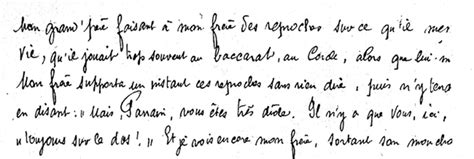 Mon grand'père faisant à mon frère des reproches sur ce qu'il me
vie, qu'il jouait trop souvent au baccarat, au Cercle, alors que lui
Mon frère supporta un instant ces reproches sans rien dire, puis n'y ten
en disant : "Mais, Parrain, vous êtes très drôle. Il n'y a que vous, ici,
"toujours sur le dos ! " Et je vois encore mon frère, sortant son moucho